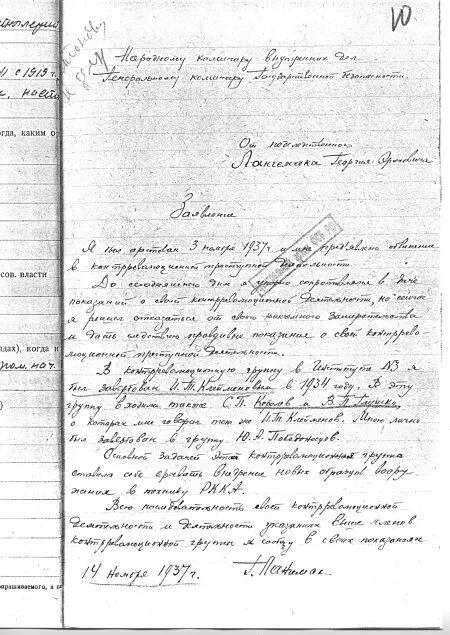 10
Народному комиссару внутренних дел
Генеральному комиссару Государственной безопасности
От подследственного
Лангемака Георгия Эриховича
Заявление
Я был арестован 3 ноября 1937г и мне предъявлено обвинение
в контрреволюционной преступной деятельности.
До сегодняшнего дня я упорно сопротивлялся в даче
показаний о своей контрреволюционной деятельности, но сейчас
я решил отказаться от своего никчемного запирательства
и дать следствию правдивые показания о своей контррево-
люционной преступной деятельности.
В контрреволюционную группу в Институте №3 я
был завербован И.Т. Клейменовым в 1934 году. В эту
группу входили также С.П. Королев и В.П. Глушко,
о которых мне говорил тот же И.Т. Клейменов. Мною лично
был завербован в группу Ю.А. Победоносцев.
Основной задачей этой контрреволюционная группа
ставила себе срывать внедрение новых образцов воору
жения в технику РККА.
Всю показывательность своей контрреволюционной
деятельности и деятельности указанных выше членов
контрреволюционной группы я сообщу в своих показаниях
14 ноября 1937г.
Г. Лангемак
с 1919 г.
огда, каким о
сов. власти
дах), когда и
прашиваемого, а не